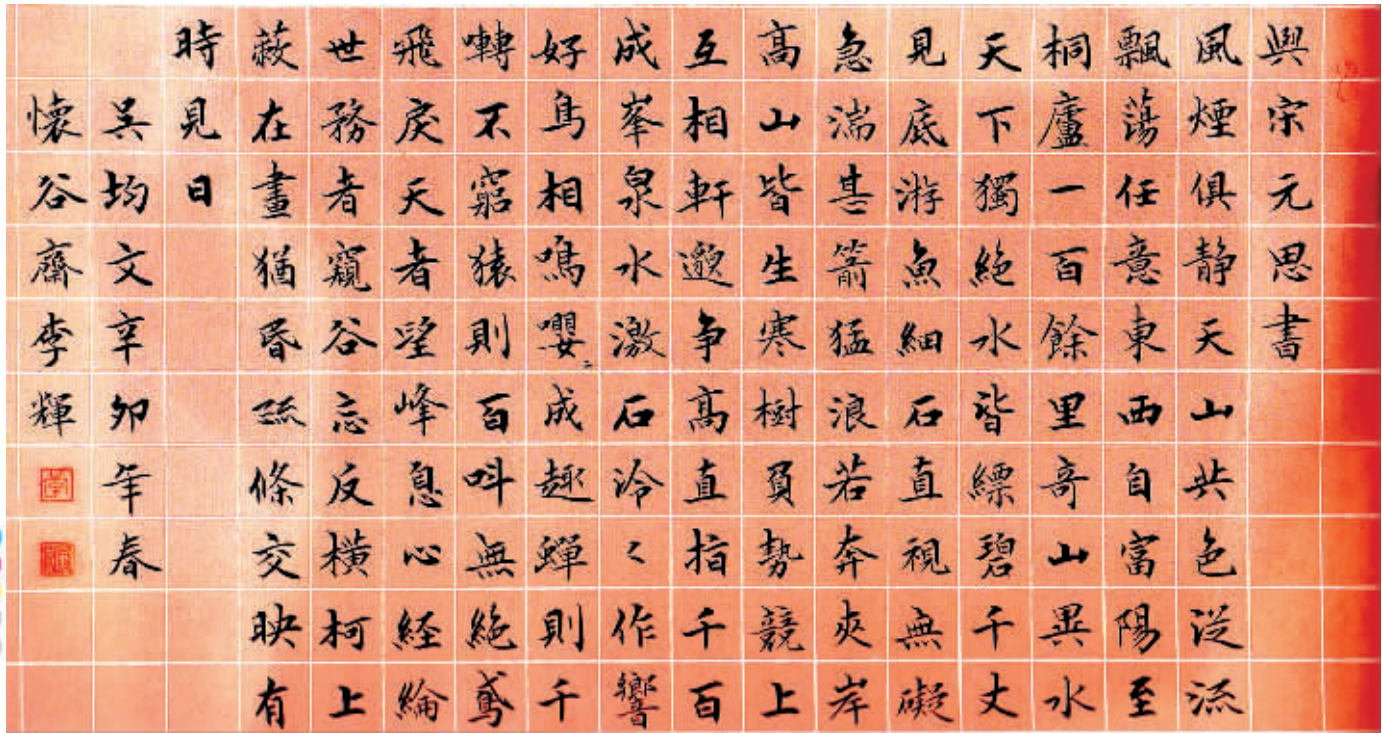 與宋元思書
風煙俱静天山共色從流
飄蕩任意東西自富陽至
桐廬一百餘里奇山異水
天下獨絶水皆縹碧千丈
見底游魚細石直視無礙
急湍甚箭猛浪若奔夾岸
高山皆生寒樹負勢競上
互相軒邈争高直指千百
成峯泉水激石泠〻作響
好鳥相鳴嚶〻成趣蟬則千
囀不窮猿則百叫無絶鳶
飛戾天者望峰息心経綸
世務者窺谷忘反横柯上
蔽在晝猶昏疏條交映有
時見日
吳均文辛卯年春
懷谷齋李輝
李
輝